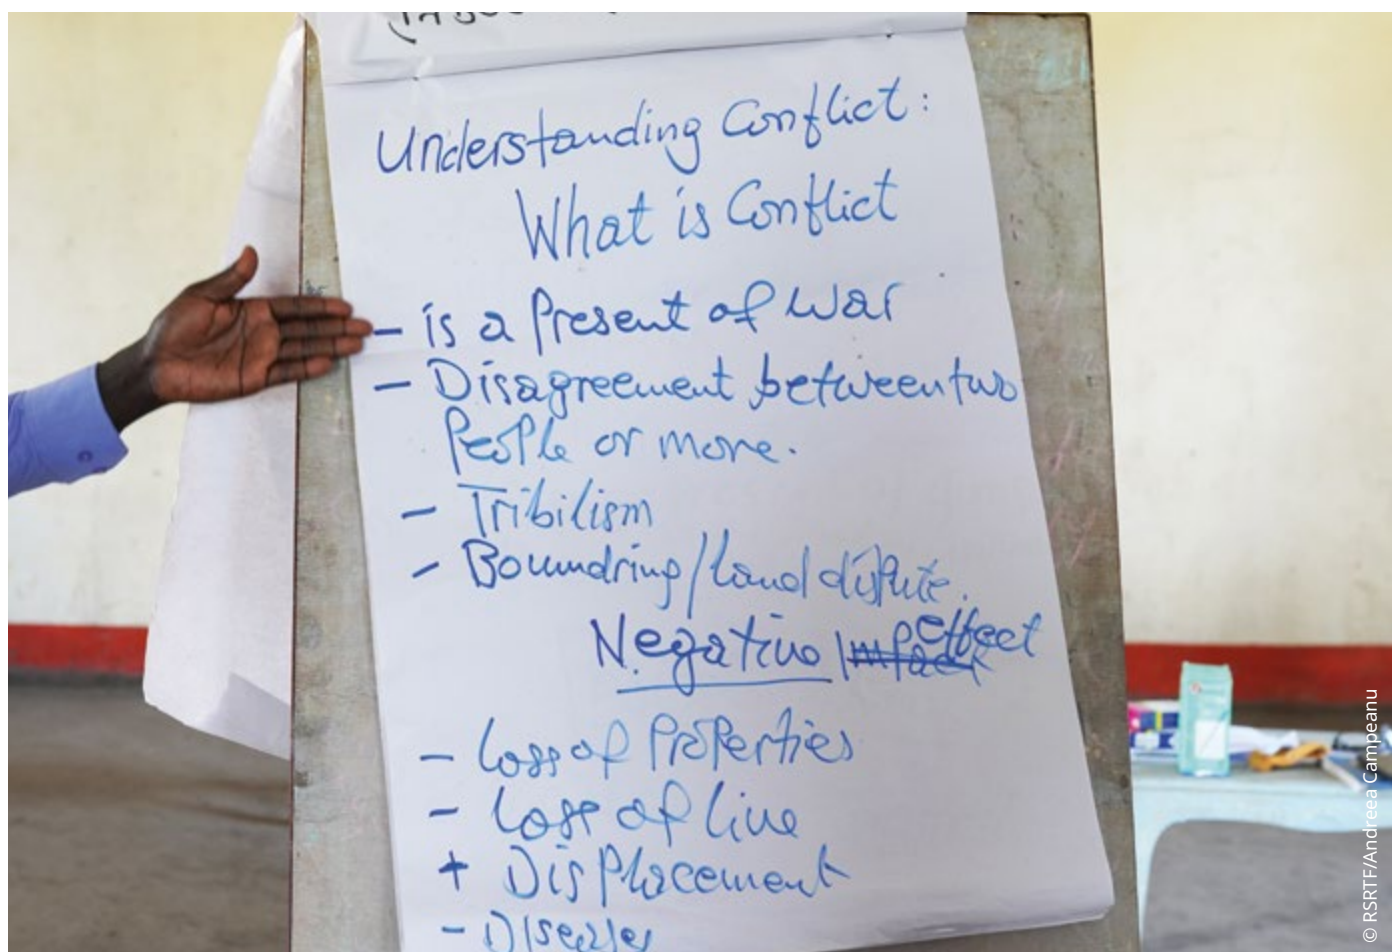 Understanding Conflict:
What is Conflict
- is a Present of war
- Disagreement between two
People or more.
- Tribilism
- Boundring/land dispute.
Negative Impact effect
- Loss of Properties
- Loss of live
+ Displacement
- Diseases
© RSRTF/Andreea Campeanu